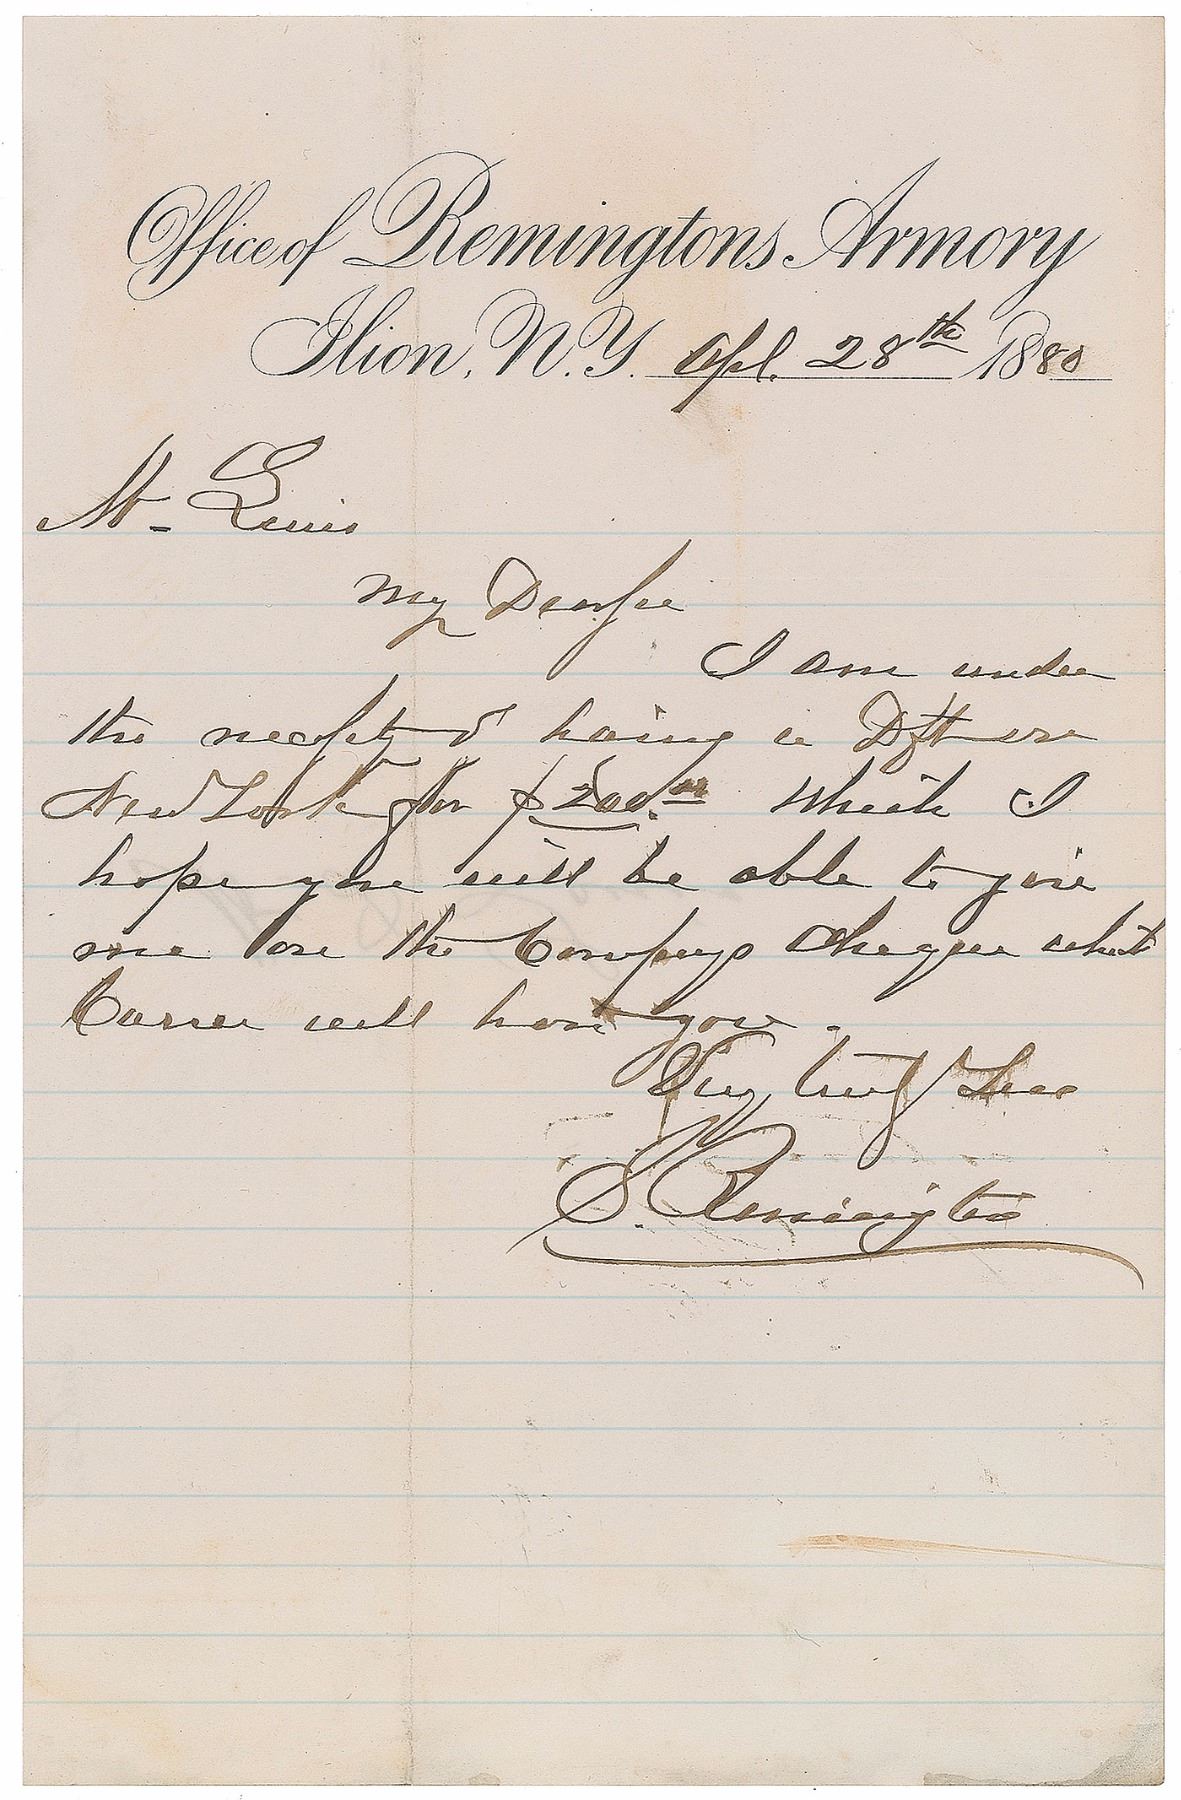 Office of Remingtons Armory
Ilion, N.Y. Apl. 28th 1880
Mr. Lewis
My Dear Sir
I am under
the necessity of having a Dft on
New York for $200.00 which I
hope you will be able to give
me on the Companys cheque which
will hand you.
Very truly Yours
S. Remington